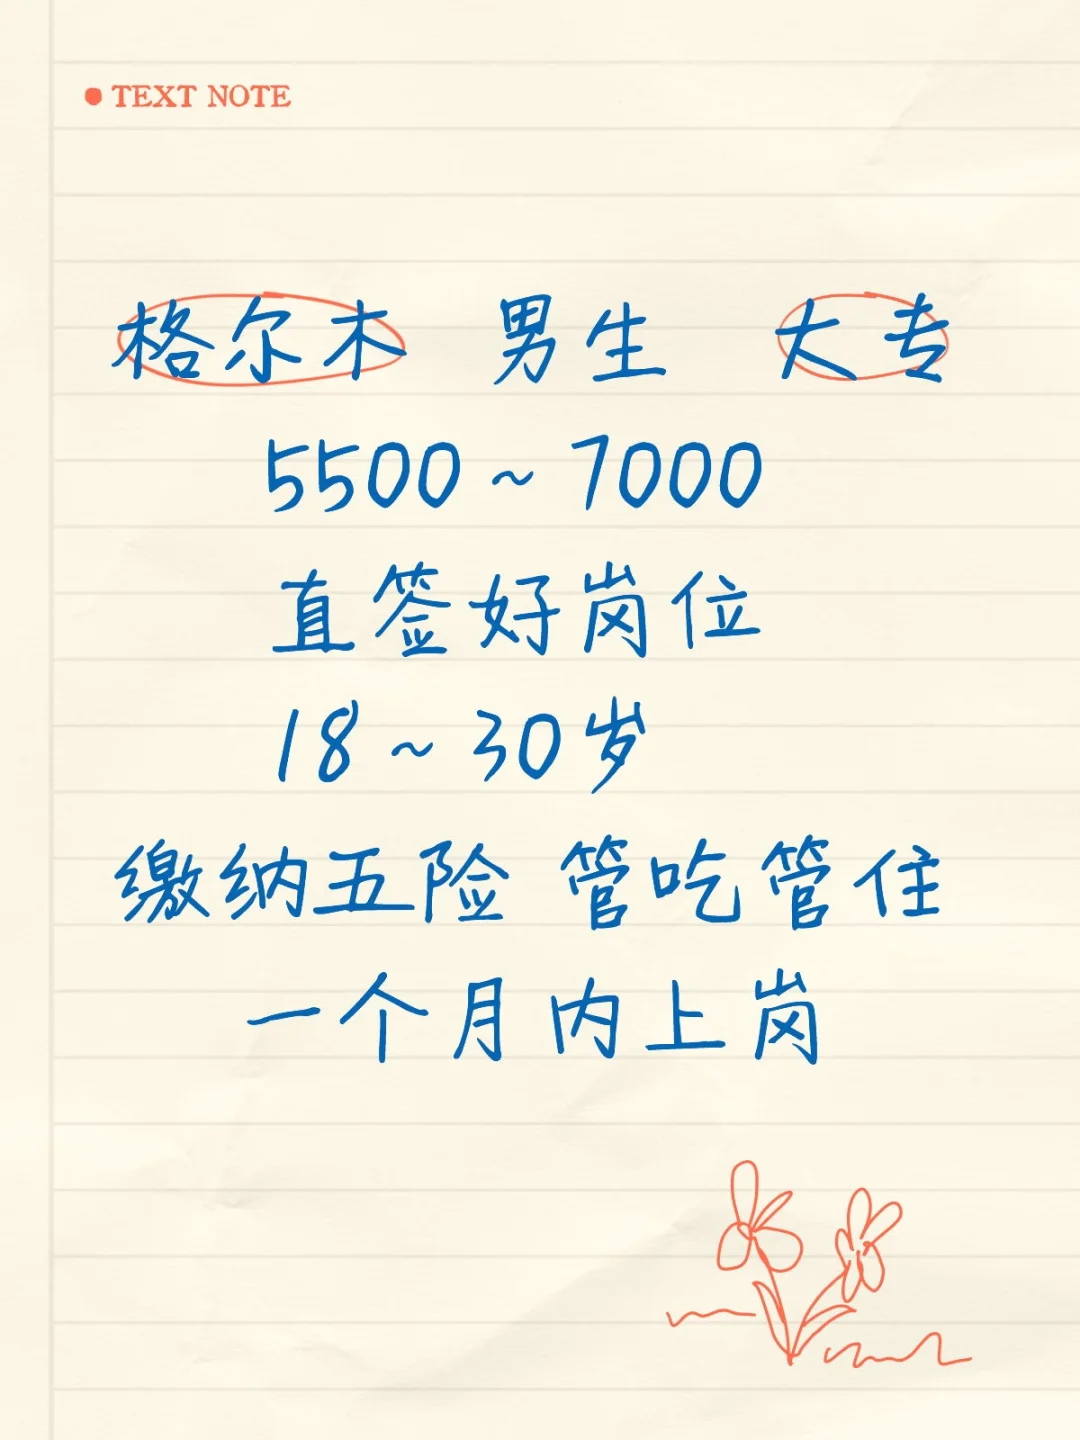 TEXT NOTE
格尔木 男生 大专
5500~7000
直签好岗位
18~30岁
缴纳五险 管吃管住
一个月内上岗